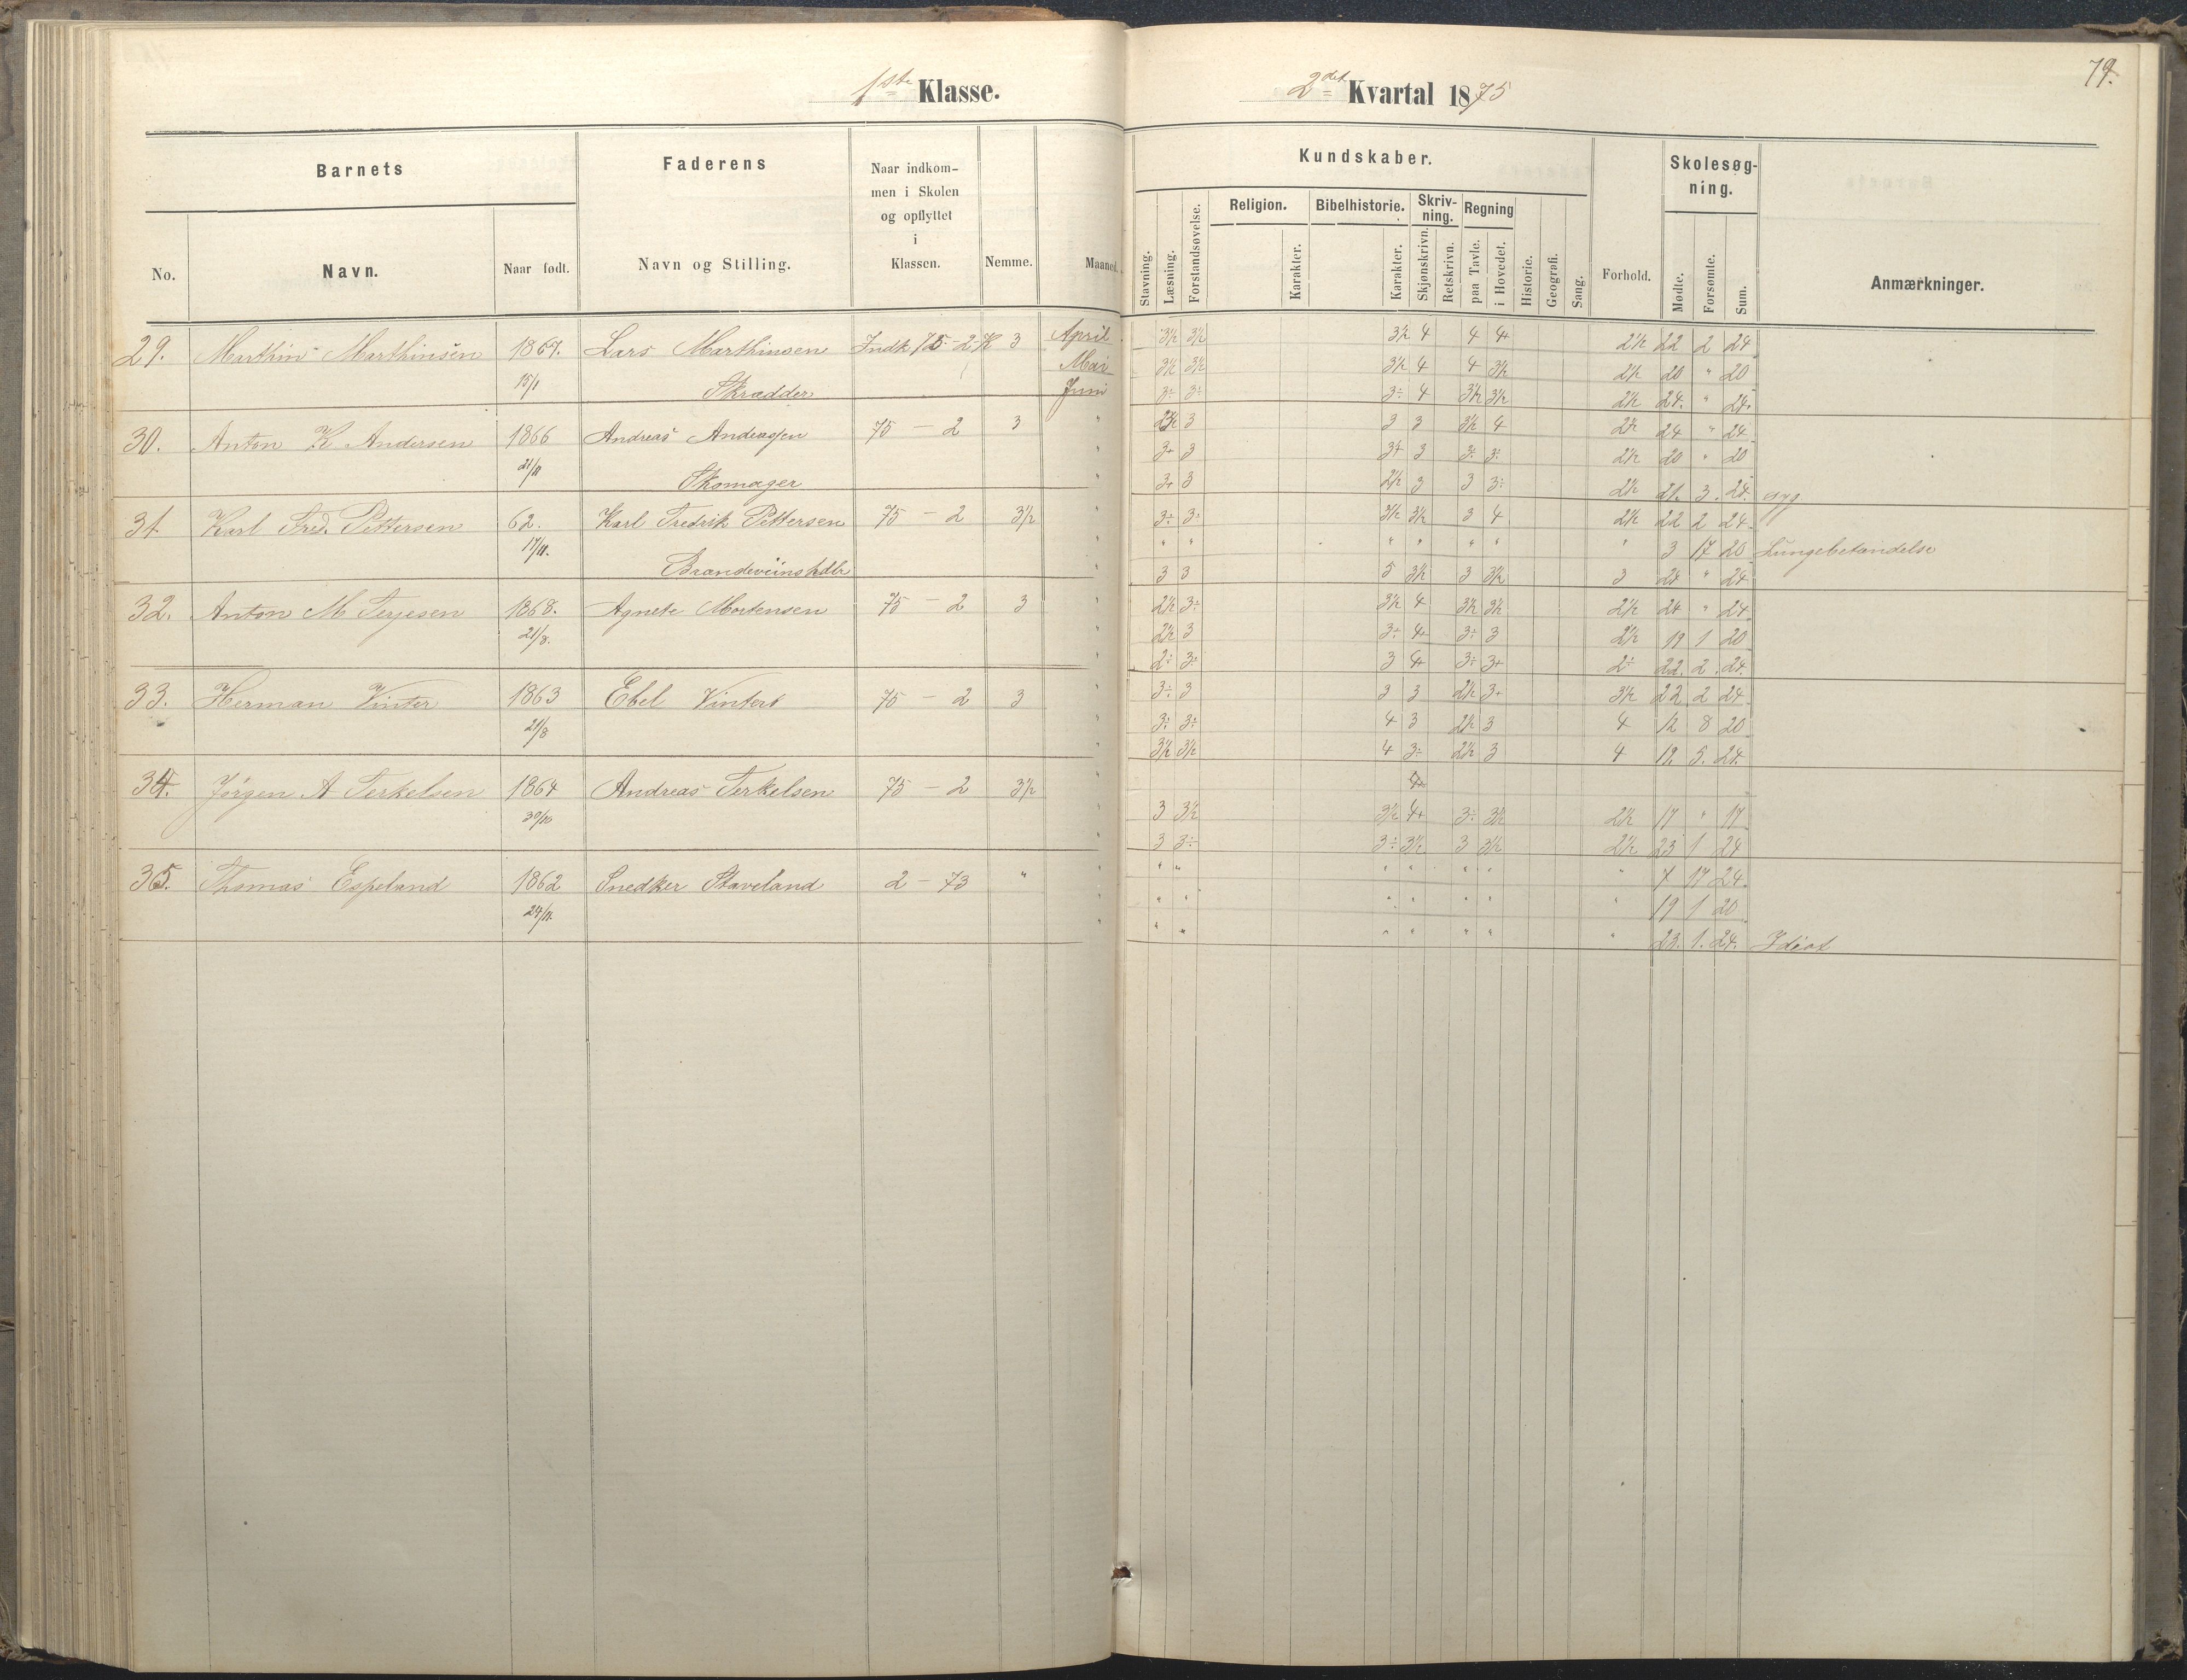 1ste Klasse.
2det Kvartal 1875
79.
Barnets
Faderens
Naar indkommen i Skolen og opflyttet i Klassen.
Nemme.
Maaned.
No.
Navn.
Naar født.
Navn og Stilling.
Kundskaber.
Skolesøgning.
Stavning.
Læsning.
Forstandsøvelse.
Religion.
Karakter.
Bibelhistorie.
Karakter.
Skrivning.
Skjønskrivn.
Retskrivn.
Regning
paa Tavle.
i Hovedet.
Historie.
Geografi.
Sang.
Forhold.
Mødte.
Forsømte.
Sum.
Anmærkninger.
29. Marthin Marthinsen 1867. Lars Marthinsen Indk 75 - 2 K 3 April 3½ 3½ 3½ 4 4 4+ 2½ 22 2 24
15/1 Mai 3½ 3½ 3½ 4 4 3½ 2½ 20 " 20
Skrædder Juni 3÷ 3÷ 3÷ 4 3½ 3½ 2½ 24. " 24.
30. Anton K Andersen 1866 Andreas Andreassen 75 - 2 3 " 3 3 3 3½ 4 2½ 24 " 24
21/11 " 3+ 3 3+ 3 3÷ 3÷ 2½ 20 " 20
Skomager " 3+ 3 2½ 3 3 3÷ 2½ 21. 3. 24. syg
31. Karl Fred. Pettersen 62. Karl Fredrik Pettersen 75 - 2 3½ " 3÷ 3÷ 3½ 3½ 3 4 2½ 22 2 24
17/11. " " " " " " " " 3 17 20 Lungebetændelse
Brændeviinshdlr " 3 3 5 3½ 3 3½ 3 24 " 24
32. Anton M Terjesen 1868. Agnete Mortensen 75 - 2 3 " 2½ 3÷ 3½ 4 3½ 3½ 2½ 24 " 24
21/8. " 2½ 3 3÷ 4+ 3÷ 3 2½ 19 1 20
" 2÷ 3÷ 3 4+ 3÷ 3+ 2÷ 22. 2. 24.
33. Herman Vinter 1863 Ebel Vinter 75 - 2 3 " 3÷ 3 3 3 2½ 3+ 3½ 22 2 24
21/8 " 3÷ 3÷ 4 3 2½ 3 4 12 8 20
" 3½ 3½ 4 3÷ 2½ 3 4 19. 5. 24.
34. Jørgen A Terkelsen 1864 Andreas Terkelsen 75 - 2 3½
30/10 " 3 3½ 3½ 4+ 3÷ 3½ 2½ 17 " 17
" 3 3÷ 3÷ 3½ 3 3½ 2½ 23 1 24
35. Thomas Espeland 1862 Snedker Staveland 2 - 73 " " " " " " " " " 7 17 24.
24/11. " " " " " " " " 19 1 20
" " " " " " " " 23. 1. 24. Idiot